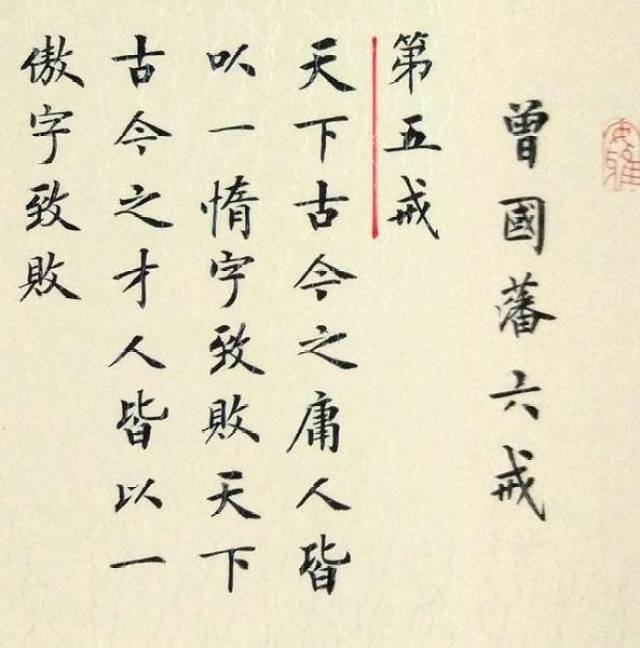 安雅
曾國藩六戒
第五戒
天下古今之庸人皆
以一惰字致敗天下
古今之才人皆以一
傲字致敗